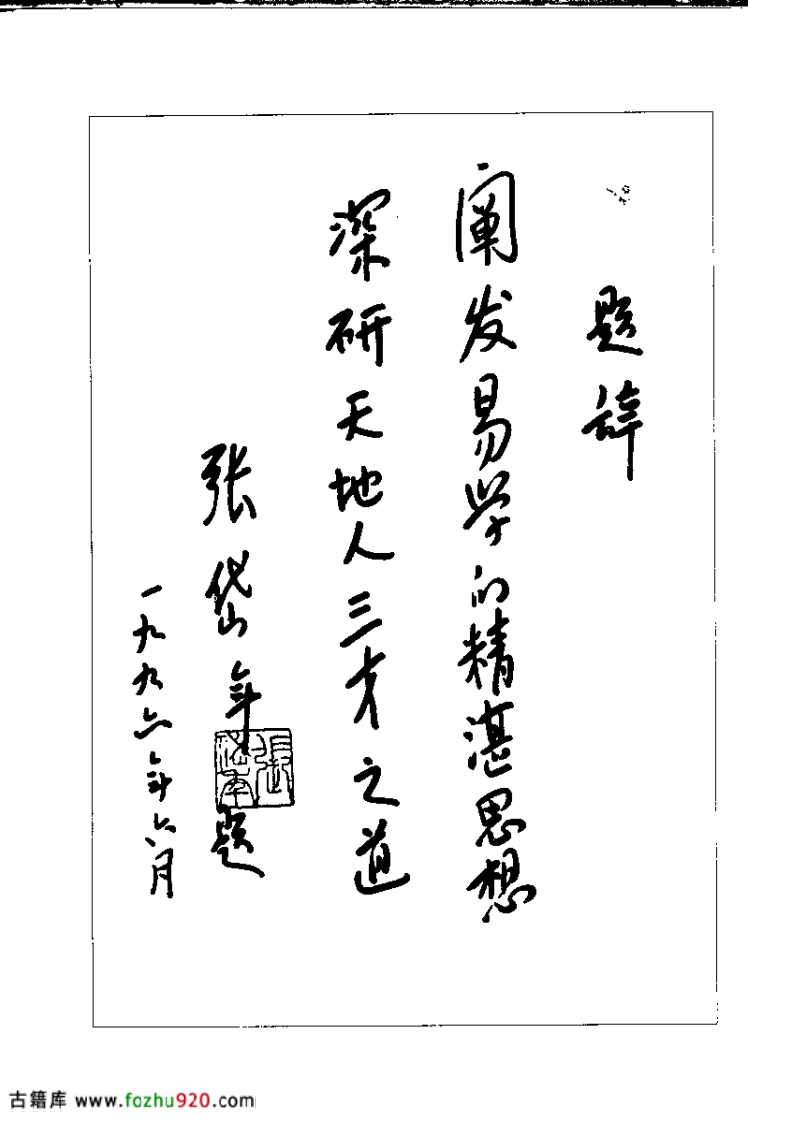 题辞
阐发易学的精湛思想
深研天地人三才之道
张岱年题
一九九六年六月
張岱年
古籍库 www.fozhu920.com